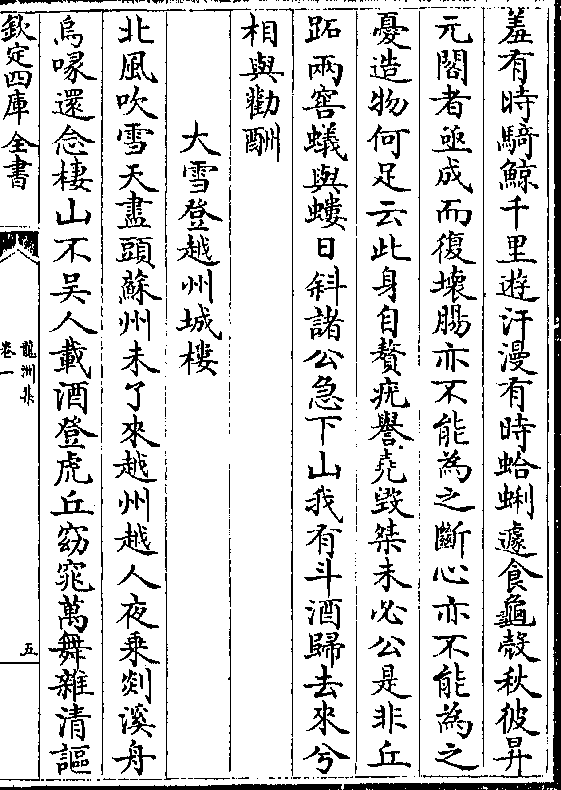 羞有時騎鯨千里遊汗漫有時蛤蜊遽食龜殻秋彼昇
元閣者亟成而復壞腸亦不能為之斷心亦不能為之
憂造物何足云此身自贅疣譽堯毀桀未必公是非丘
跖兩窖蟻與螻日斜諸公急下山我有斗酒歸去來兮
相與勸酬
大雪登越州城樓
北風吹雪天盡頭蘇州未了來越州越人夜乗剡溪舟
烏喙還念棲山不吴人載酒登虎丘窈窕萬舞雜清謳
欽定四庫全書
龍洲集
卷一
五